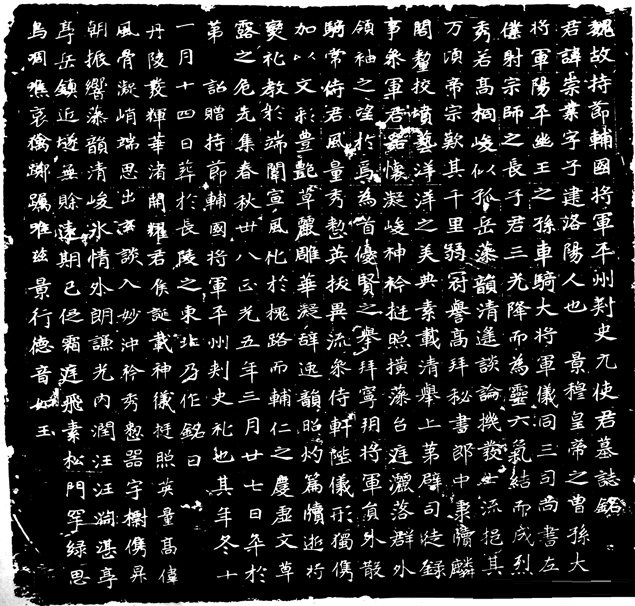 魏故持節輔國將軍平州刾史元使君墓誌銘
君諱崇業字子建洛陽人也　景穆皇帝之曾孫大
將軍陽平幽王之孫車騎大將軍儀同三司尚書左
僕射宗師之長子君三光降而為靈六氣結而成烈
秀若高桐峻似孤岳藻韻清遙談論機發士流挹其
万頃帝宗歎其千里弱冠譽高拜秘書郎中康牘麟
閣鏨挍墳藝洋洋之美典素載清舉上第辟司徒錄
事參軍君器懷凝峻神衿挺照橫藻台庭灑落群外
領袖之望於焉為首優賢之舉拜寧朔將軍員外散
騎常侍君風量秀慜英拔異流參侍軒陛儀形獨儁
加以文彩豊艷草麗雕華凝辭逸韻昭灼篇牘逝將
變礼教於端闈宣風化於槐路而輔仁之慶虛文草
露之危先集春秋卅八正光五年三月廿七日卒於
第　詔贈持節輔國將軍平州刾史礼也其年冬十
一月十四日葬於長陵之東北乃作銘曰
丹陵發輝華渚開耀君侯誕載神儀挺照英量高偉
風骨凝峭端思出玄談入妙沖衿秀慜器宇櫥儁昇
朝振響藻韻清峻氷情外朗謙光內潤汪汪淵湛亭
亭岳鎮近塏無賒遠期已促霜庭飛素松門罕綠思
鳥喞噍哀禽躑躅唯玆景行德音如玉